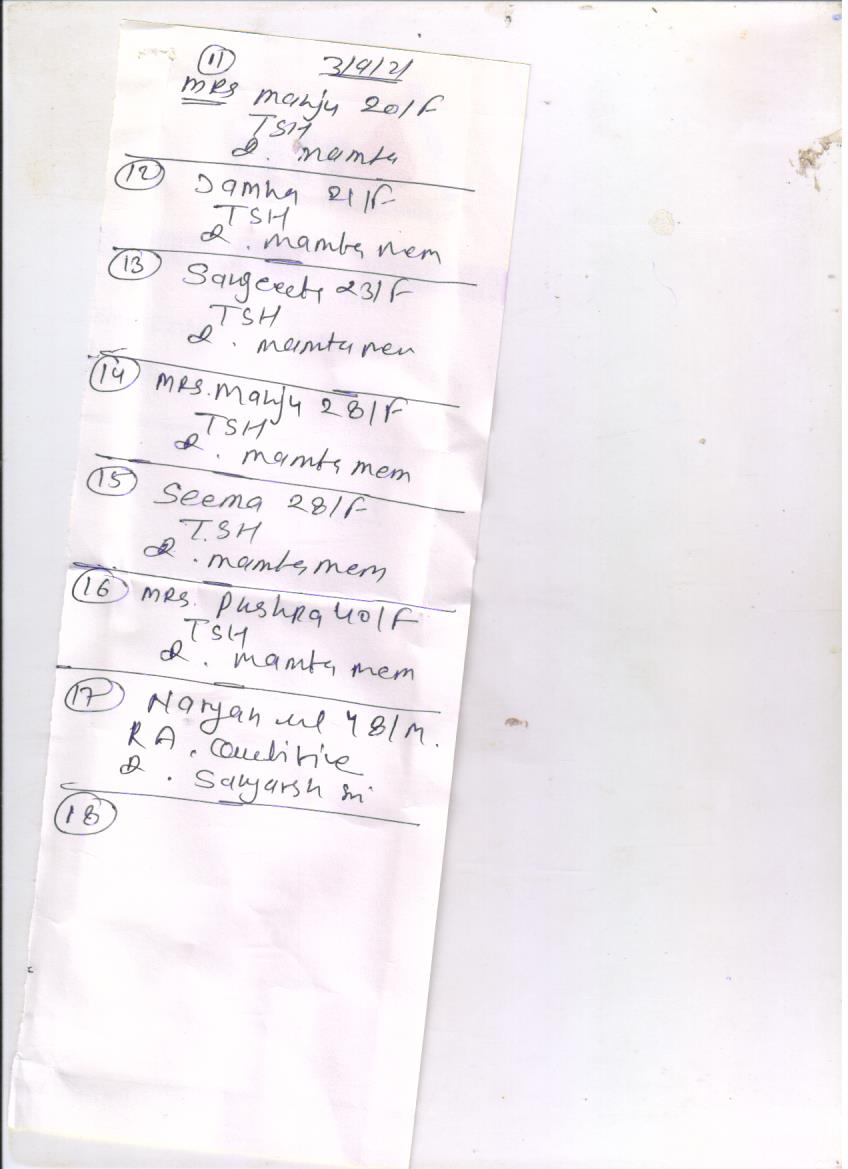 11 3/9/21
MRS Manju 20/F
TSH
d. mamta
12 Damha 21/F
TSH
d. mamta mem
13 Sangeeta 23/F
TSH
d. mamta mem
14 MRS. Manju 28/F
TSH
d. mamta mem
15 Seema 28/F
T.SH
d. mamta mem
16 MRS. Pushpa 40/F
TSH
d. mamta mem
17 Naryan 48/M.
RA.
d.
18